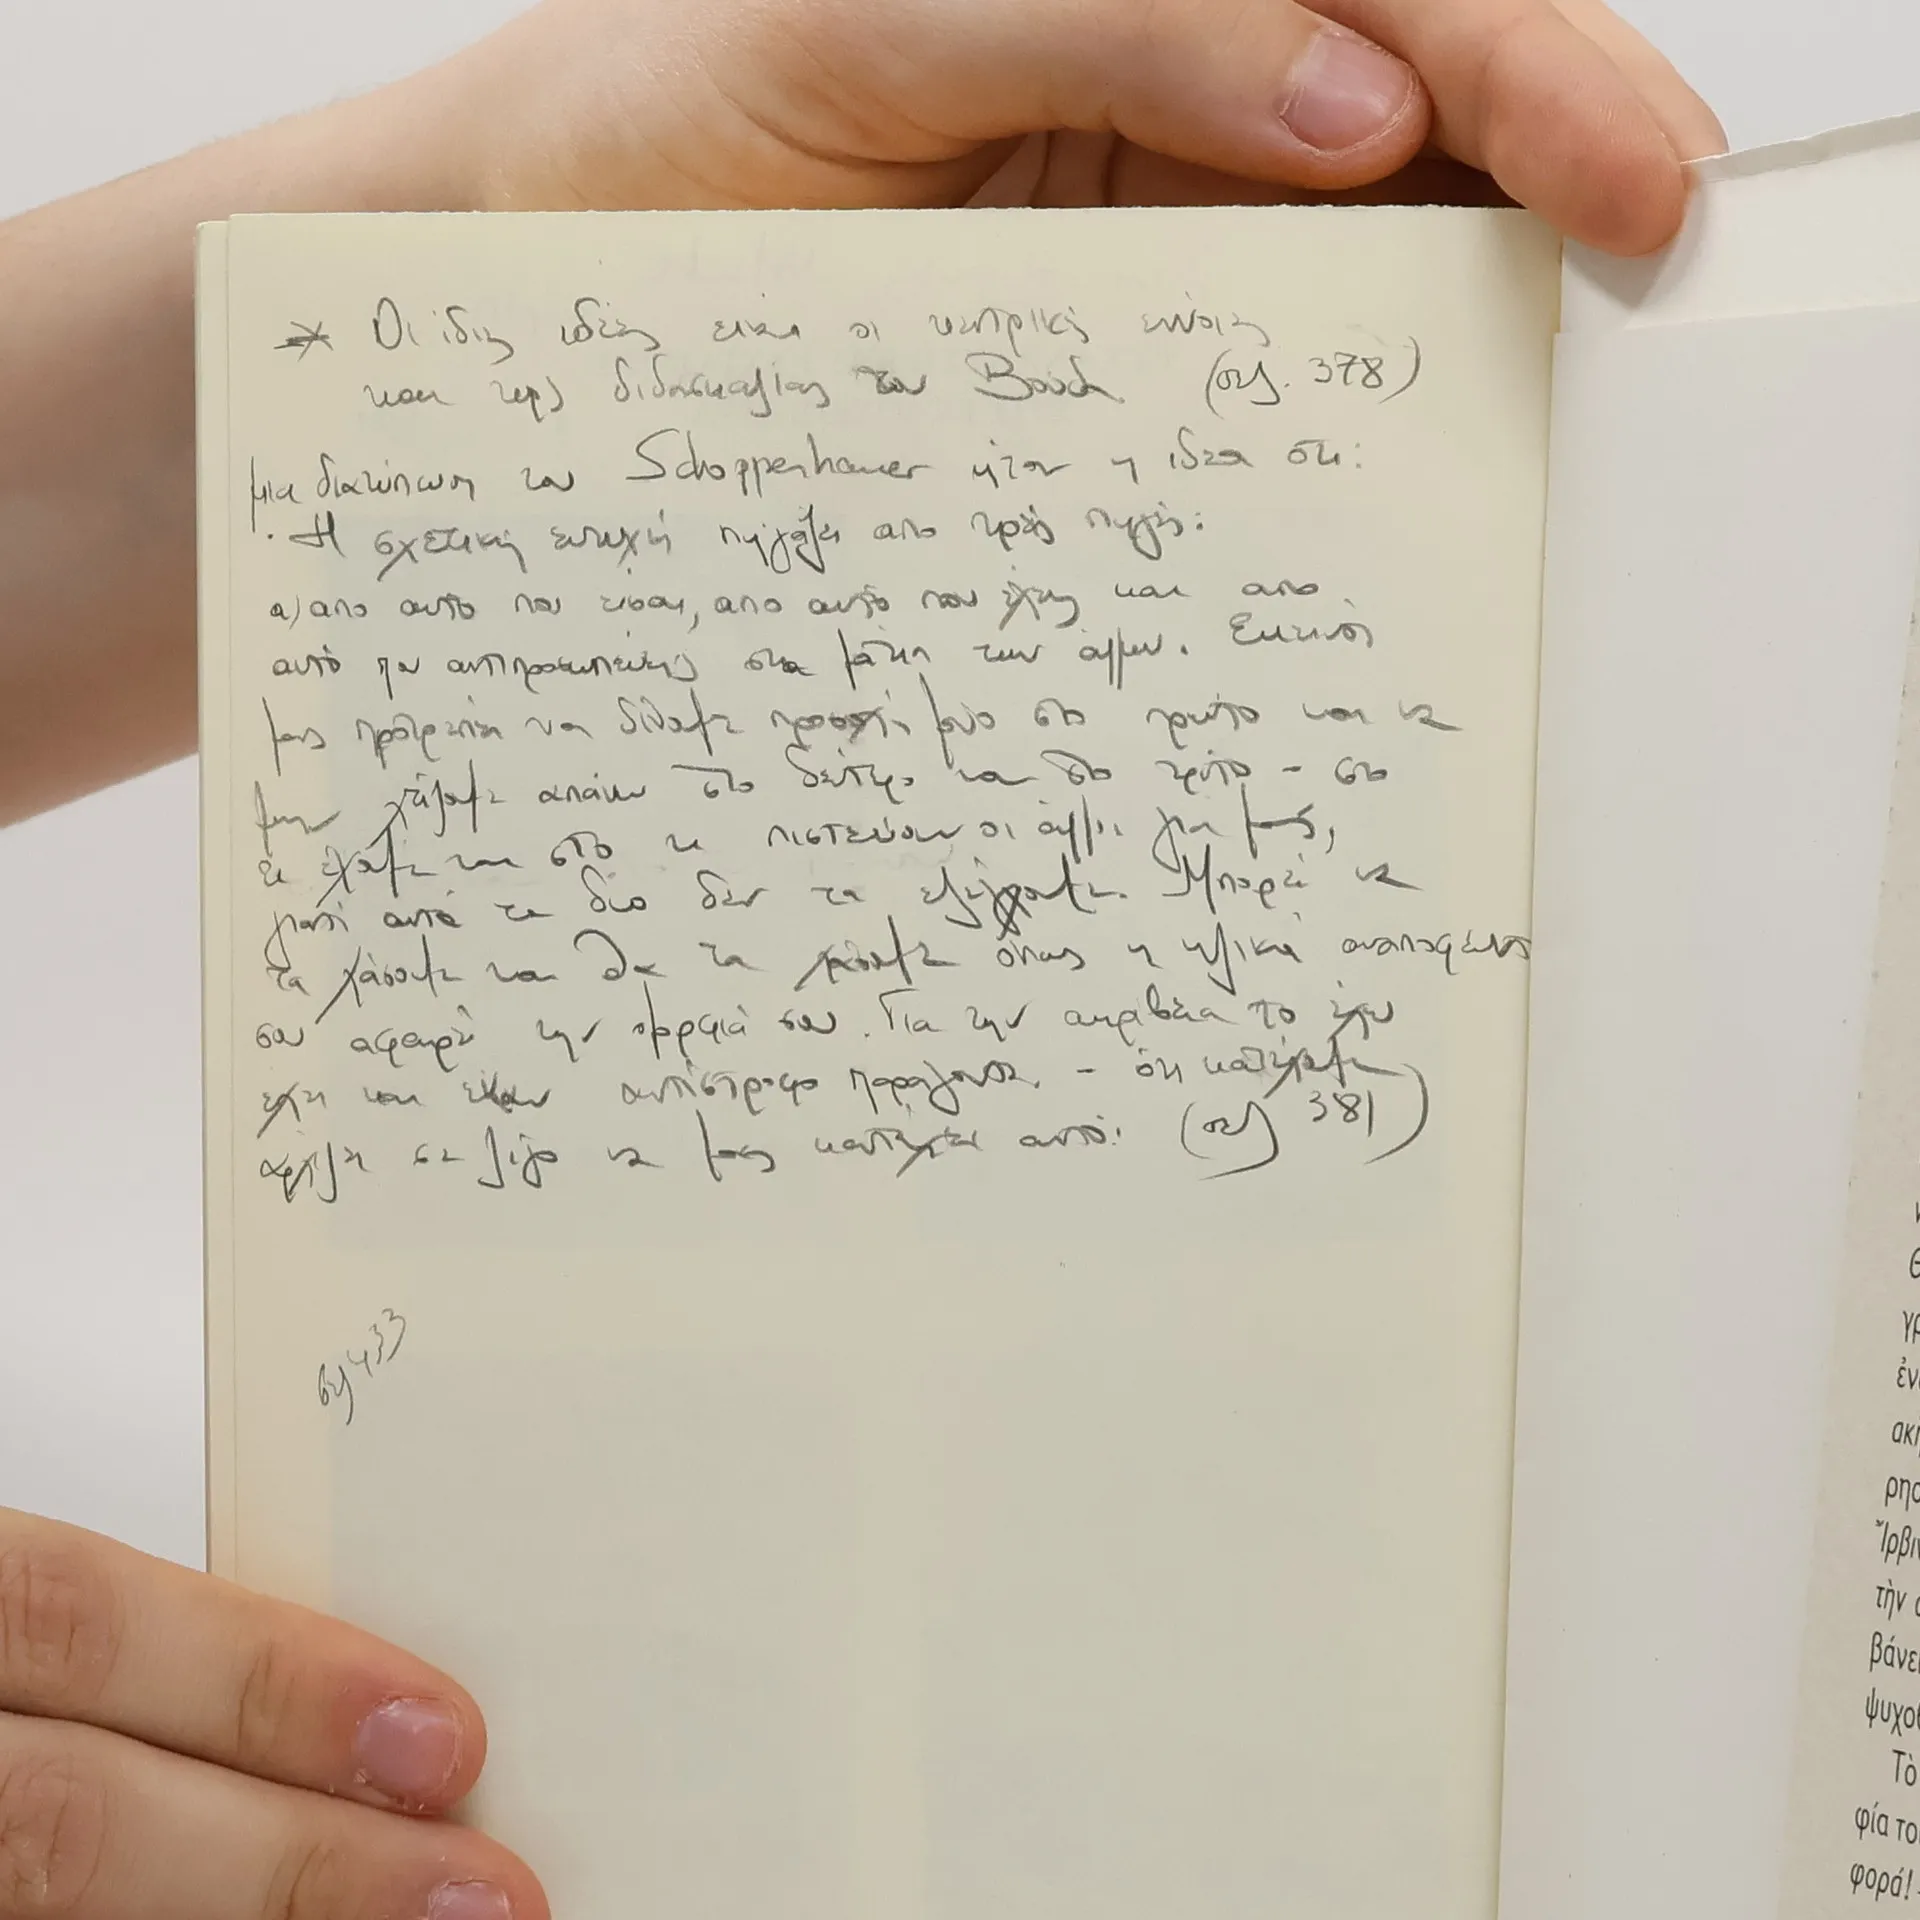 * Οι ίδιες ιδέες είναι οι κεντρικές έννοιες
και της διδασκαλίας του Βούδα (σελ. 378)
μια διατύπωση του Schoppenhauer ήταν η ιδέα ότι:
. Η σχετική ευτυχή πηγάζει απο τρείς πηγές:
α) απο αυτό που είσαι, απο αυτό που έχεις και απο
αυτό που αντιπροσωπεύεις στα μάτια των άλλων. Εκείνος
μας πρότρεπει να δίνουμε προσοχή μόνο στο πρώτο και να
μην χτίζουμε επάνω στο δεύτερο και στο τρίτο - στο
τι έχουμε και στο τι πιστεύουν οι άλλοι για μας,
γιατί αυτά τα δύο δεν τα ελέγχουμε. Μπορεί να
τα χάσουμε και θα τα χάσουμε όπως η ηλικία αναπόφευκτα
σου αφαιρεί την ομορφιά σου. Για την ακρίβεια το έχω
έχει και έναν αντίστροφο παράγοντα - ότι κατέχουμε
αρχίζει σε λίγο να μας κατέχει αυτό! (σελ 381)
σελ 433
κ
Θ
γρ
ἐν
ακ
ρησ
Ἴρβιν
τὴν
βάνει
ψυχοθ
Τὸ
φία το
φορά!